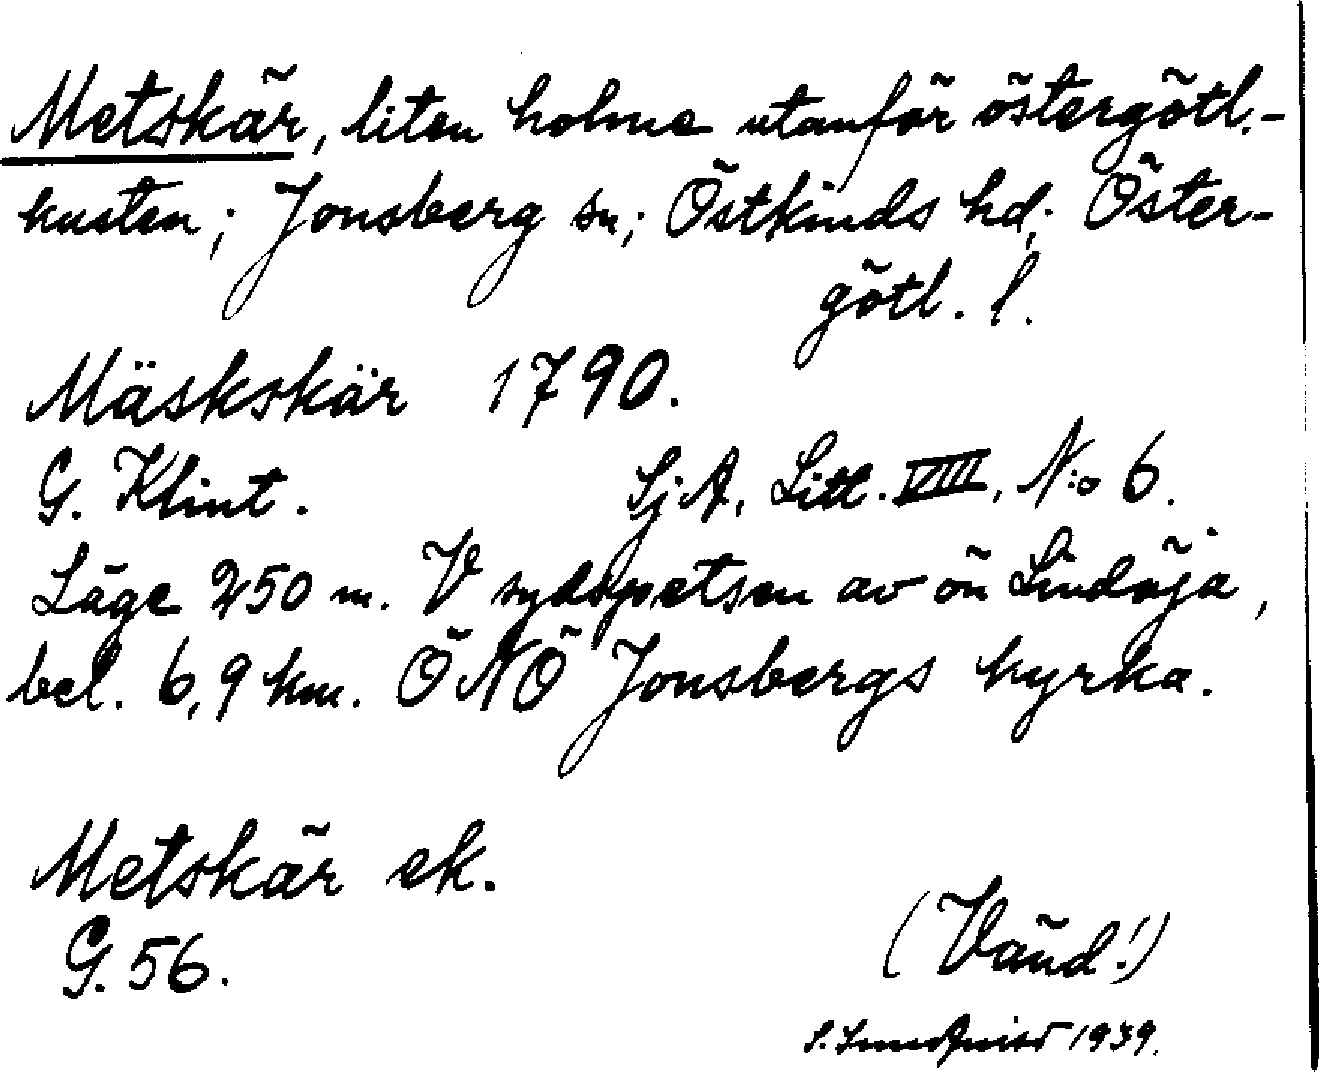 Metskär, liten holme utanför östergötl.-
kusten; Jonsberg sn; Östkinds hd; Öster-
götl. l.
Mäskskär 1790.
G. Klint. Sj.A. Litt. VIII, N:o 6.
Läge 250 m. V sydspetsen av ön Lindöja,
bel. 6,9 km. ÖNÖ Jonsbergs kyrka.
Metskär ek.
G. 56.
(Vänd!)
1939.